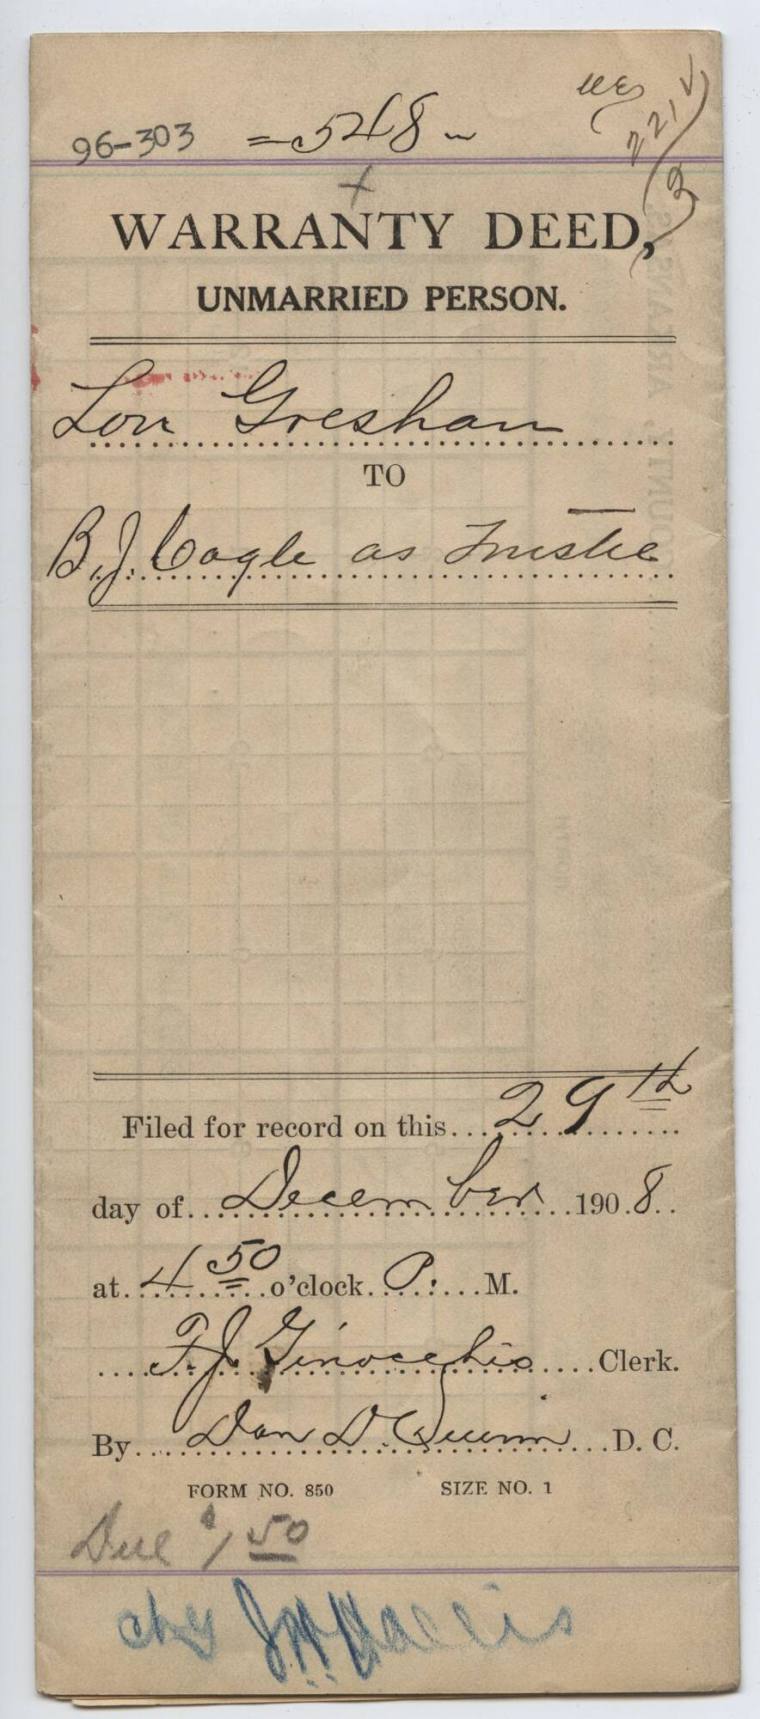 96-303 = 548 -
WARRANTY DEED,
UNMARRIED PERSON.
Lon Gresham
TO
B. J. Cagle as Trustee
Filed for record on this 29th
day of December 1908
at 4 50 o'clock P. M.
F. J. Ginocchio Clerk.
By Dan D. Quinn D. C.
FORM NO. 850 SIZE NO. 1
Due $1 50
chg J H Harris